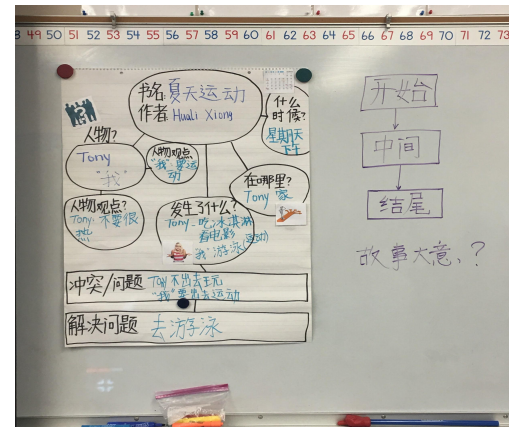 8 49 50 51 52 53 54 55 56 57 58 59 60 61 62 63 64 65 66 67 68 69 70 71 72 73
书名:夏天运动
作者:Huali Xiong
什么
时候?
星期天
下午
人物?
Tony
"我"
人物观点
"我"要运
动
在哪里?
Tony 家
人物观点?
Tony:不要很
热
发生了什么?
Tony-吃冰淇淋
看电影
"我"游泳(运动)
冲突/问题 Tony不出去玩
"我"要出去运动
解决问题 去游泳
开始
中间
结尾
故事大意、?